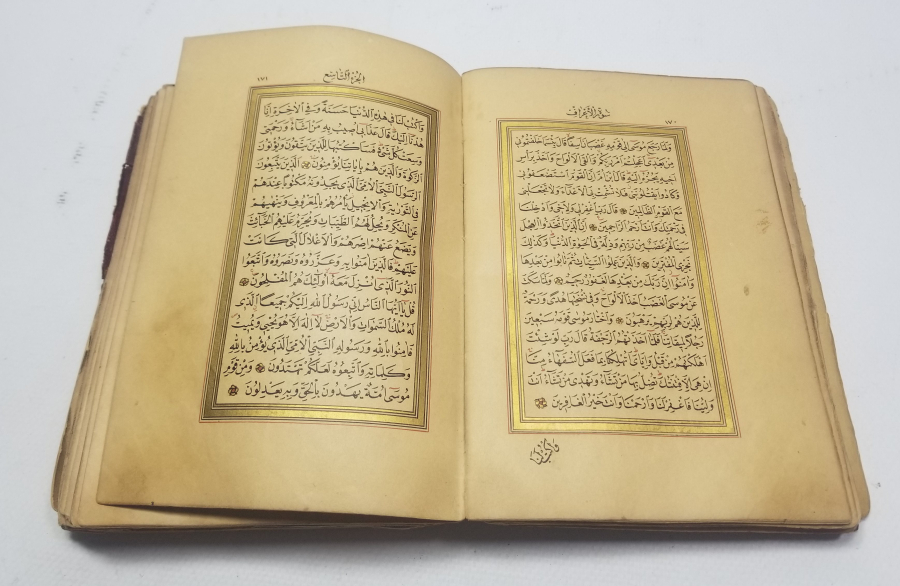 سورة الاعراف ١٧٠
وَلَمَّا رَجَعَ مُوسٰى اِلٰى قَوْمِهٖ غَضْبَانَ اَسِفًا قَالَ بِئْسَمَا خَلَفْتُمُونٖى
مِنْ بَعْدٖى اَعَجِلْتُمْ اَمْرَ رَبِّكُمْ وَاَلْقَى الْاَلْوَاحَ وَاَخَذَ بِرَأْسِ
اَخٖيهِ يَجُرُّهُ اِلَيْهِ قَالَ ابْنَ اُمَّ اِنَّ الْقَوْمَ اسْتَضْعَفُونٖى
وَكَادُوا يَقْتُلُونَنٖى فَلَا تُشْمِتْ بِىَ الْاَعْدَاءَ وَلَا تَجْعَلْنٖى
مَعَ الْقَوْمِ الظَّالِمٖينَ قَالَ رَبِّ اغْفِرْ لٖى وَلِاَخٖى وَاَدْخِلْنَا
فٖى رَحْمَتِكَ وَاَنْتَ اَرْحَمُ الرَّاحِمٖينَ اِنَّ الَّذٖينَ اتَّخَذُوا الْعِجْلَ
سَيَنَالُهُمْ غَضَبٌ مِنْ رَبِّهِمْ وَذِلَّةٌ فِى الْحَيٰوةِ الدُّنْيَا وَكَذٰلِكَ
نَجْزِى الْمُفْتَرٖينَ وَالَّذٖينَ عَمِلُوا السَّيِّئَاتِ ثُمَّ تَابُوا مِنْ بَعْدِهَا
وَاٰمَنُوا اِنَّ رَبَّكَ مِنْ بَعْدِهَا لَغَفُورٌ رَحٖيمٌ وَلَمَّا سَكَتَ
عَنْ مُوسَى الْغَضَبُ اَخَذَ الْاَلْوَاحَ وَفٖى نُسْخَتِهَا هُدًى وَرَحْمَةٌ
لِلَّذٖينَ هُمْ لِرَبِّهِمْ يَرْهَبُونَ وَاخْتَارَ مُوسٰى قَوْمَهُ سَبْعٖينَ
رَجُلًا لِمٖيقَاتِنَا فَلَمَّا اَخَذَتْهُمُ الرَّجْفَةُ قَالَ رَبِّ لَوْ شِئْتَ
اَهْلَكْتَهُمْ مِنْ قَبْلُ وَاِيَّاىَ اَتُهْلِكُنَا بِمَا فَعَلَ السُّفَهَاءُ مِنَّا
اِنْ هِىَ اِلَّا فِتْنَتُكَ تُضِلُّ بِهَا مَنْ تَشَاءُ وَتَهْدٖى مَنْ تَشَاءُ اَنْتَ
وَلِيُّنَا فَاغْفِرْ لَنَا وَارْحَمْنَا وَاَنْتَ خَيْرُ الْغَافِرٖينَ
وَاكْتُبْ لَنَا
الجزء التاسع ١٧١
وَاكْتُبْ لَنَا فٖى هٰذِهِ الدُّنْيَا حَسَنَةً وَفِى الْاٰخِرَةِ اِنَّا
هُدْنَا اِلَيْكَ قَالَ عَذَابٖى اُصٖيبُ بِهٖ مَنْ اَشَاءُ وَرَحْمَتٖى
وَسِعَتْ كُلَّ شَىْءٍ فَسَاَكْتُبُهَا لِلَّذٖينَ يَتَّقُونَ وَيُؤْتُونَ
الزَّكٰوةَ وَالَّذٖينَ هُمْ بِاٰيَاتِنَا يُؤْمِنُونَ اَلَّذٖينَ يَتَّبِعُونَ
الرَّسُولَ النَّبِىَّ الْاُمِّىَّ الَّذٖى يَجِدُونَهُ مَكْتُوبًا عِنْدَهُمْ
فِى التَّوْرٰيةِ وَالْاِنْجٖيلِ يَأْمُرُهُمْ بِالْمَعْرُوفِ وَيَنْهٰيهُمْ
عَنِ الْمُنْكَرِ وَيُحِلُّ لَهُمُ الطَّيِّبَاتِ وَيُحَرِّمُ عَلَيْهِمُ الْخَبَائِثَ
وَيَضَعُ عَنْهُمْ اِصْرَهُمْ وَالْاَغْلَالَ الَّتٖى كَانَتْ
عَلَيْهِمْ فَالَّذٖينَ اٰمَنُوا بِهٖ وَعَزَّرُوهُ وَنَصَرُوهُ وَاتَّبَعُوا
النُّورَ الَّذٖى اُنْزِلَ مَعَهُ اُولٰئِكَ هُمُ الْمُفْلِحُونَ
قُلْ يَا اَيُّهَا النَّاسُ اِنّٖى رَسُولُ اللهِ اِلَيْكُمْ جَمٖيعًا الَّذٖى
لَهُ مُلْكُ السَّمٰوَاتِ وَالْاَرْضِ لَا اِلٰهَ اِلَّا هُوَ يُحْيٖى وَيُمٖيتُ
فَاٰمِنُوا بِاللهِ وَرَسُولِهِ النَّبِىِّ الْاُمِّىِّ الَّذٖى يُؤْمِنُ بِاللهِ
وَكَلِمَاتِهٖ وَاتَّبِعُوهُ لَعَلَّكُمْ تَهْتَدُونَ وَمِنْ قَوْمِ
مُوسٰى اُمَّةٌ يَهْدُونَ بِالْحَقِّ وَبِهٖ يَعْدِلُونَ